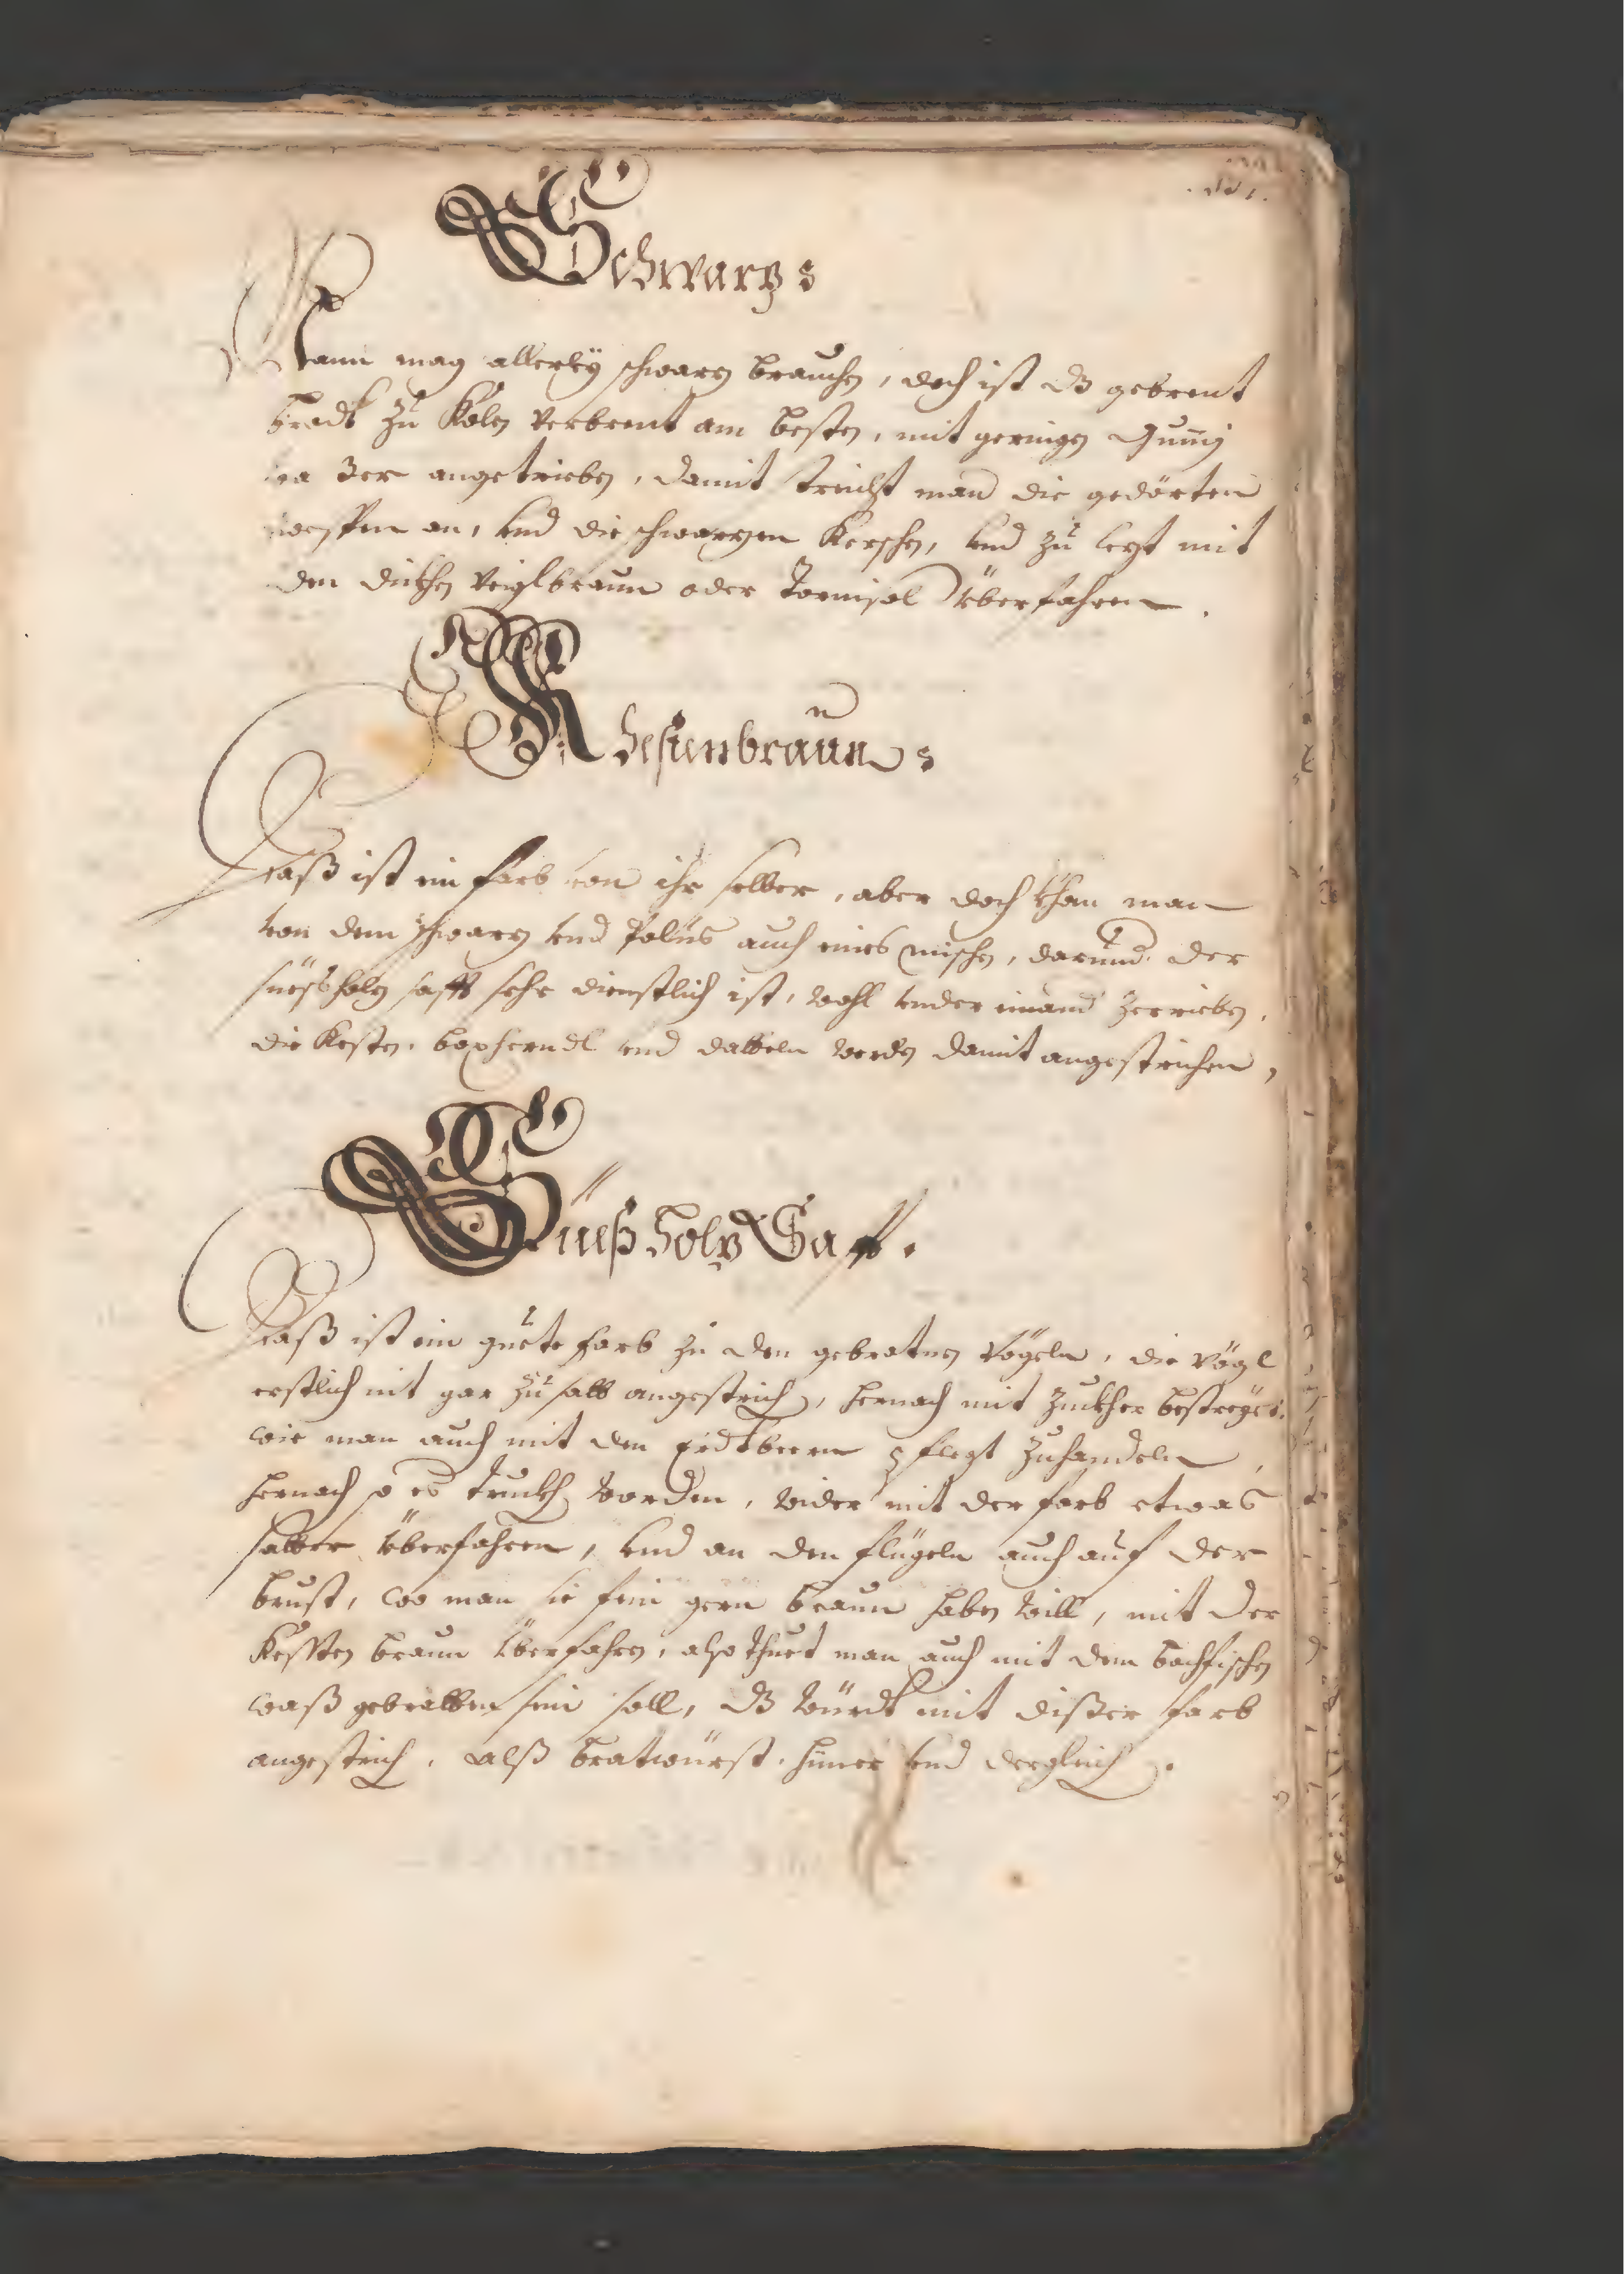 Schwartz
Mann mag allerley schwarz brauchen, doch ist dz gebrent
brodt zu Kolen verbrent am besten, mit geringen Gumj
waßer angetrieben, damit streicht man die gedörten
zwespen an, und die schwarzen Kerschen, und zu letzt mit
den dickhen Veiglbraun oder Tornisol überfahren.
Khestenbraun
Daß ist ein farb von ihr selber, aber doch khan man
von dem schwarz und Polus auch eines mischen, darund der
süessholz safft sehr dienstlich ist, wohl under einand zerrieben,
die Kesten, boxherndl und datteln werden damit angestrichen,
Süeßholtz Safft.
Daß ist ein guete farb zu den gebratnen Vögeln, die Vögl
erstlich nit gar zu salb angestrich, hernach mit Zuckher bestreyet,
wie man auch mit den Erdtbeern pflegt zuhandeln,
hernach so es truckh worden, wider mit der farb etwas
salber überfahren, und an den flügeln auch auf der
brust, wo man sie fein gern braun haben will, mit der
Kessten braun überfahren, also thuet man auch mit dem bachfischen
waß gebratten sein soll, dz würdt mit dißer farb
angestrich, alß bratwürst, hiner und dergleich.